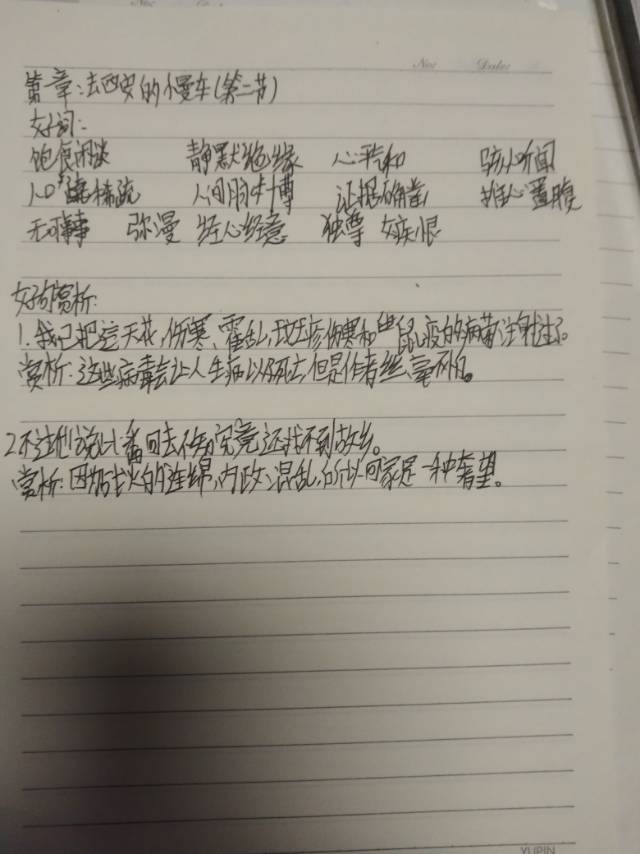 No: Date:
第章:去西安的慢车(第二节)
好词:
饱食闲谈 静默 绝缘 心平气和 骇人听闻
人口 稀疏 人间 证据确凿 推心置腹
无可事事 弥漫 经心经意 独尊 嫉恨
好句赏析:
1.我已把 天花、伤寒、霍乱、斑疹伤寒和鼠疫的病菌注射过了。
赏析:这些病毒会让人生病以及死亡,但是作者丝毫不怕。
2.不过他说此番回去,不知究竟还找不到故乡。
赏析:因为战火的连绵,内政混乱,所以回家是一种奢望。
YUPIN